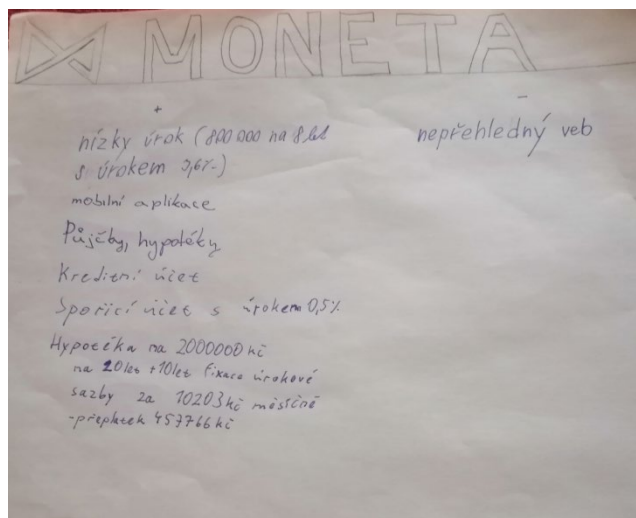 MONETA
+
-
nízky úrok (800 000 na 8 let
s úrokem 3,6%)
nepřehledný veb
mobilní aplikace
Půjčby, hypotéky
Kreditní účet
Spořicí účet s úrokem 0,5%
Hypotéka na 2000000 kč
na 20let +10let fixace úrokové
sazby za 10203kč měsíčně
-přeplatek 457766 kč